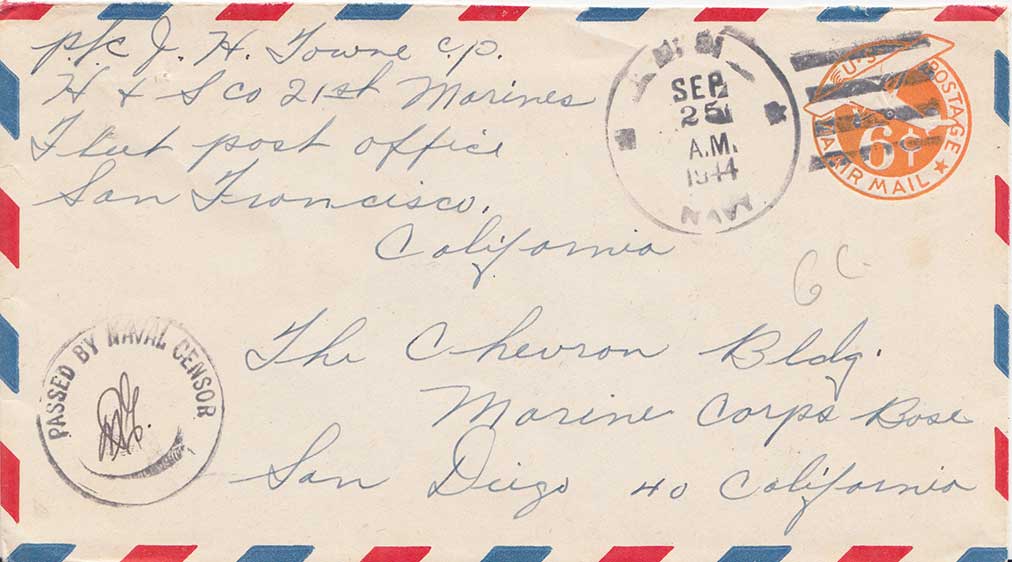 pfc J. H. Towne c.p.
H & S Co 21st Marines
Fleet post office
San Francisco.
California
SEP
25
A.M.
1944
NAVY
U.S. POSTAGE
6¢
AIR MAIL
6c
PASSED BY NAVAL CENSOR
The Chevron Bldg.
Marine Corps Base
San Diego 40 California